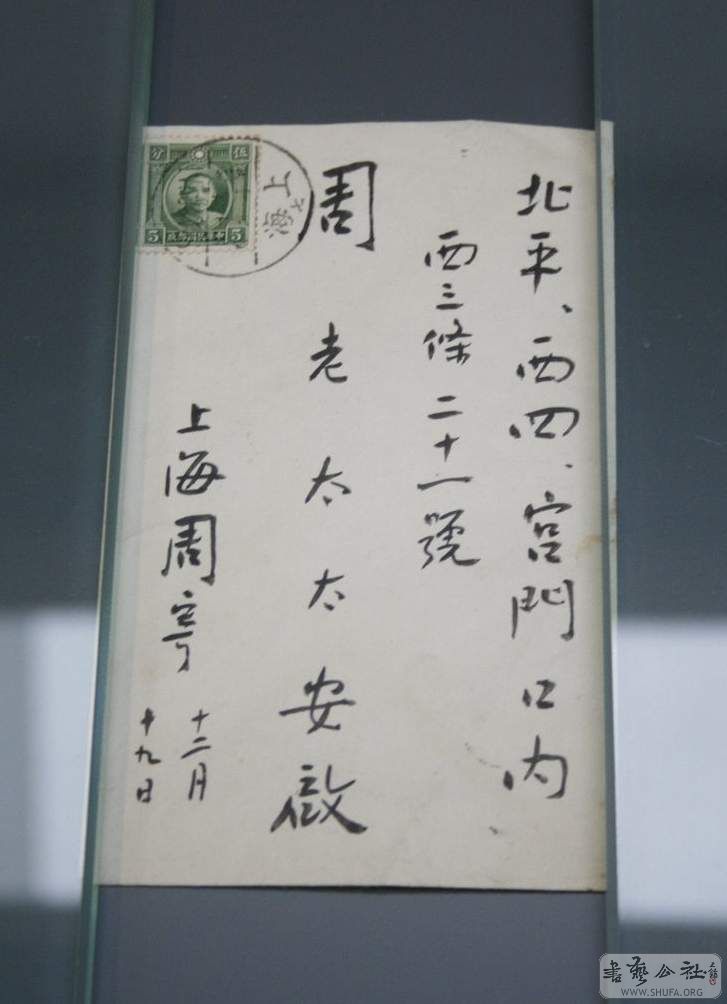 北平、西四、宮門口內
西三條二十一號
周老太太安啟
上海周寄
十二月
十九日
上海
伍
分
5
5
書藝公社
WWW.SHUFA.ORG